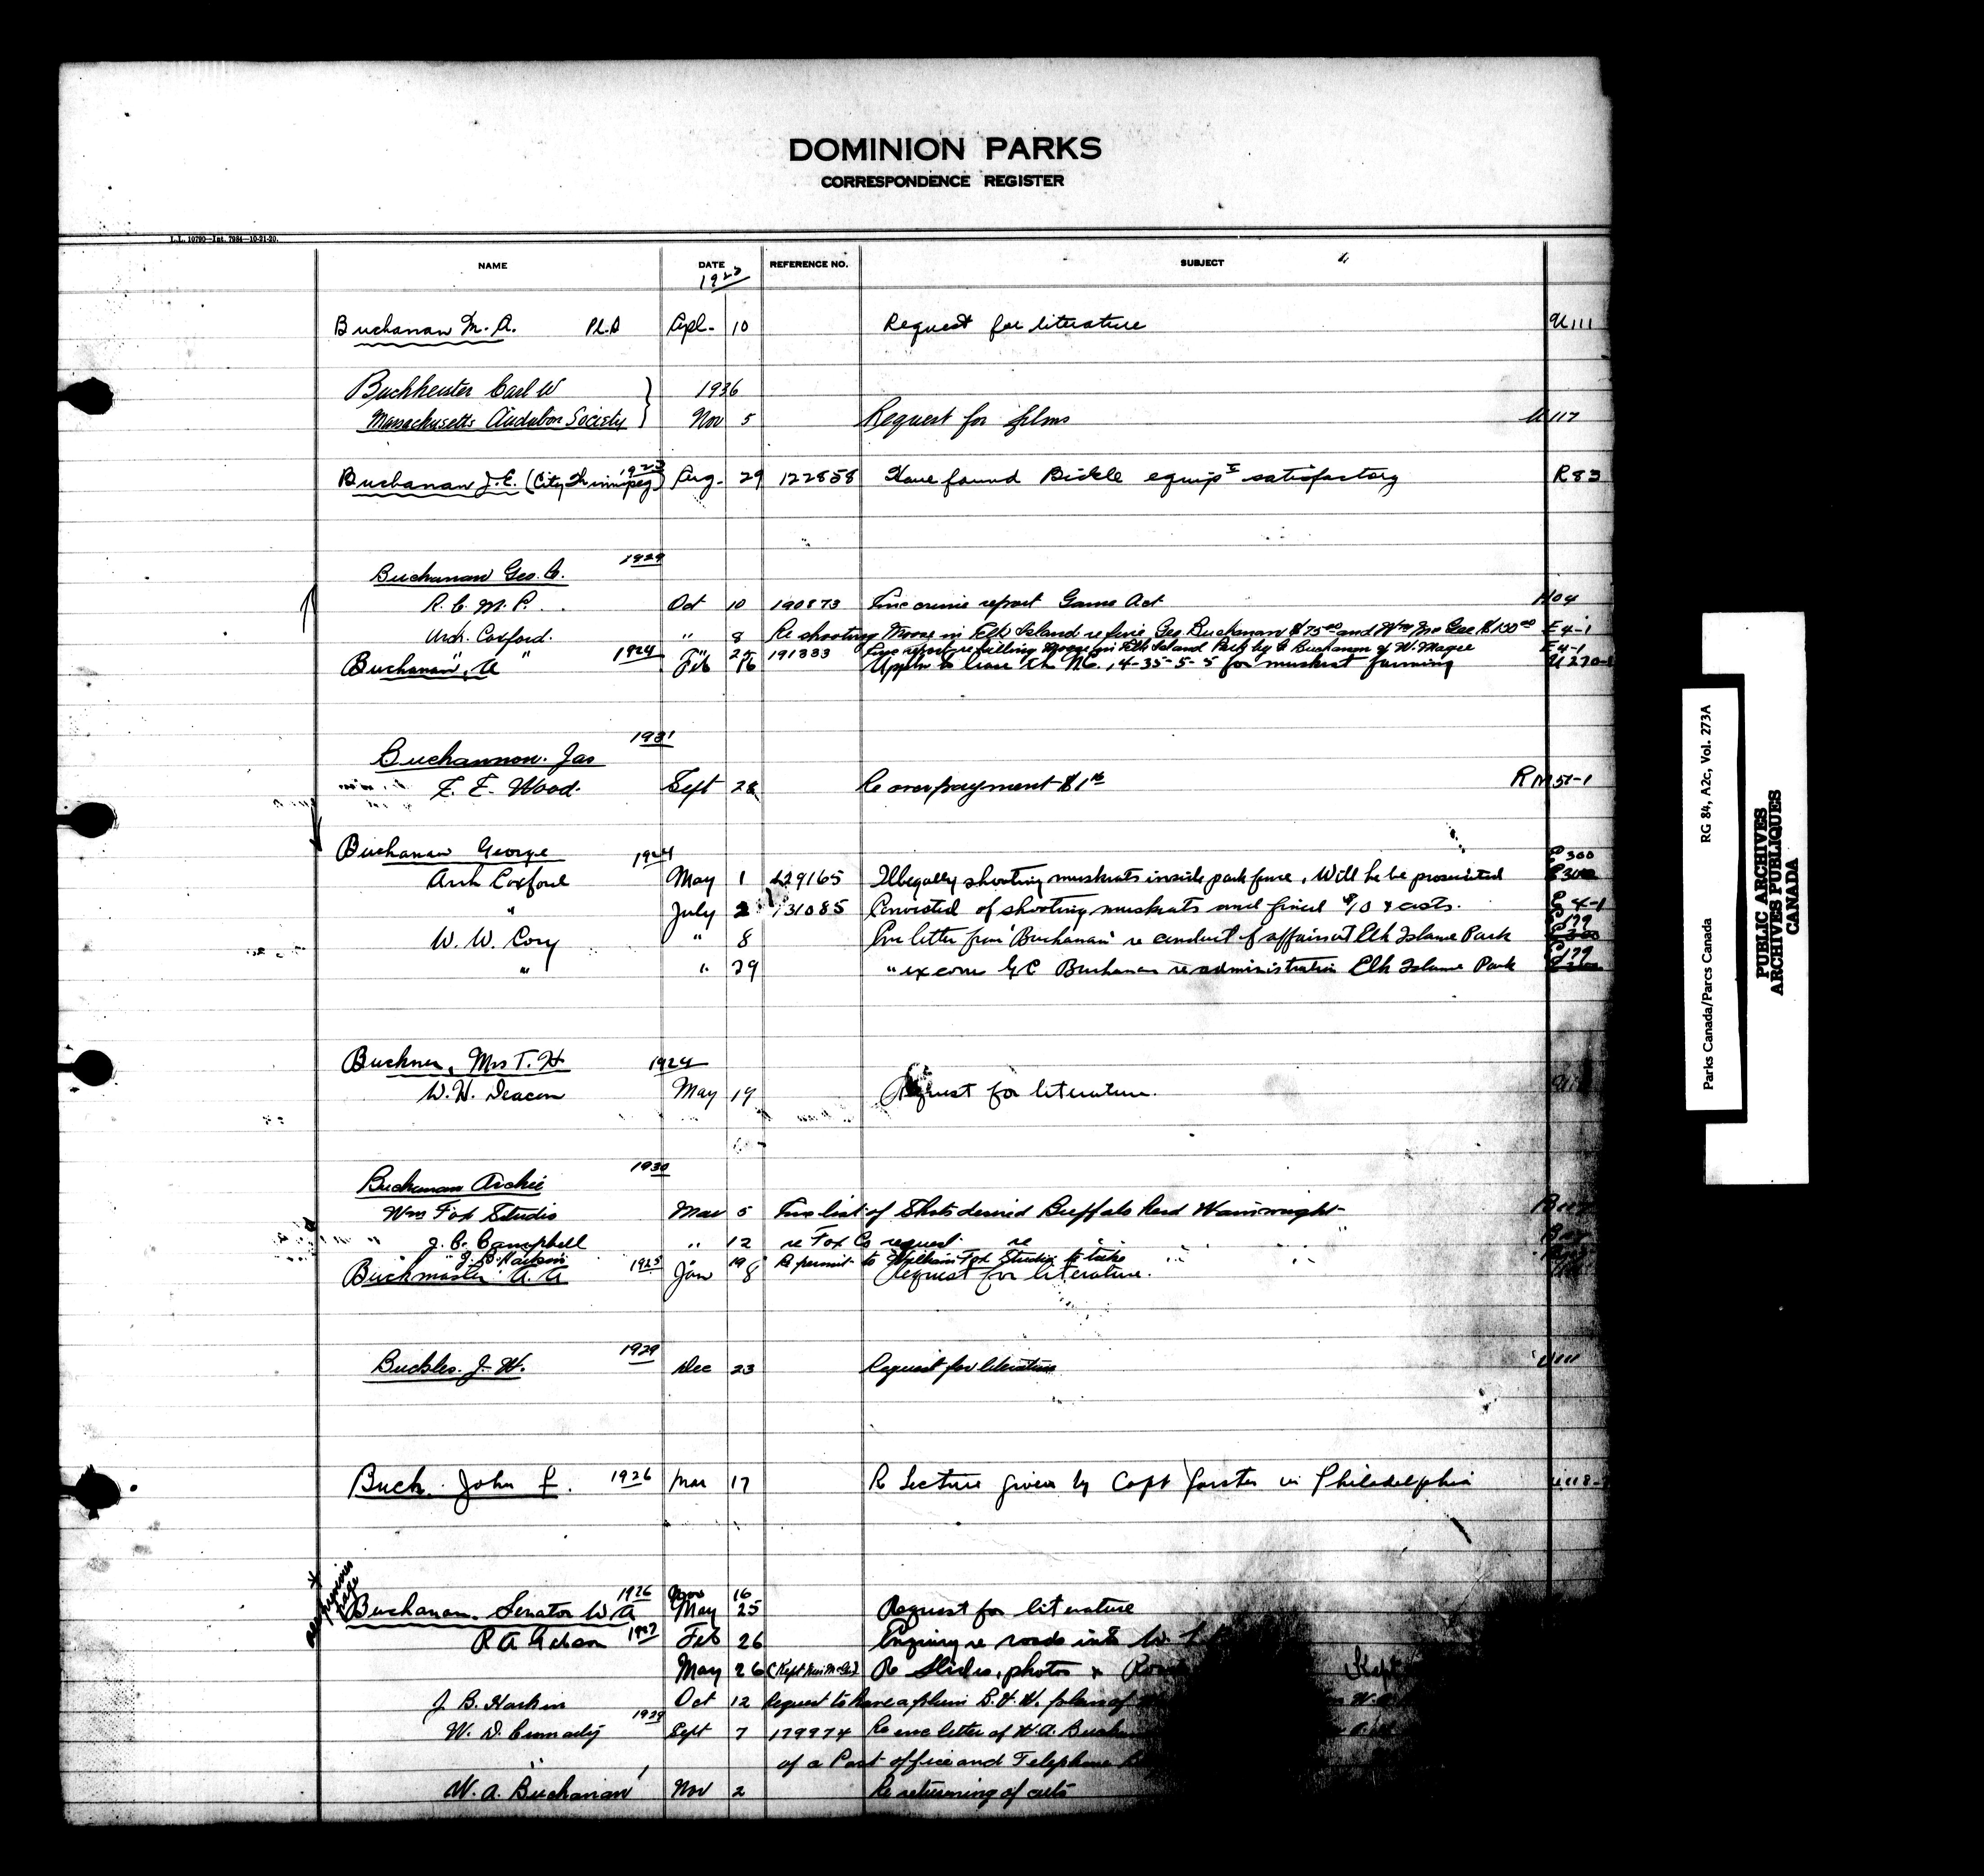 DOMINION PARKS
CORRESPONDENCE REGISTER
L.L. 10790—Int. 7984—10-21-20.
NAME DATE REFERENCE NO. SUBJECT
1923
Buchanan M. A. Ph.D Apl. 10 Request for literature U111
Buchheister Carl W 1936
Massachusetts Audubon Society Nov 5 Request for films U117
Buchanan J.E. (City Winnipeg) 1923 Aug. 29 122858 Have found Bickle equipt satisfactory R83
Buchanan Geo. C. 1929
R. C. M. P. Oct 10 190873 Enc crime report Game Act
Arch. Coxford. " 8 Re shooting Moose in Elk Island re fine Geo Buchanan $75.00 and Wm McGee $100.00 E4-1
" " " 25 191333 Enc report re killing moose in Elk Island Park by G Buchanan & W. Magee E4-1
Buchanan, A 1924 Feb 16 Appn to lease the N.E. 14-35-5-5 for muskrat farming U270-1
Buchannon. Jas 1931
F. E. Wood. Sept 28 Re overpayment $1 RM51-1
Buchanan George 1924 E300
Arch Coxford May 1 129165 Illegally shooting muskrats inside park fence. Will he be prosecuted
" July 2 131085 Convicted of shooting muskrats and fined $10 & costs. E4-1
W. W. Cory " 8 Enc letter from "Buchanan" re conduct of affairs at Elk Island Park E179
" " 29 " ex com G C Buchanan re administration Elk Island Park E179
Buckner, Mrs T. H 1924
W. H. Deacon May 19 Request for literature.
Buchanan Archie 1930
Wm Fox Studio Mar 5 Enc list of Shots desired Buffalo herd Wainwright
J. C. Campbell " 12 re Fox Co request re " "
" J. B. Harkin " 19 Re permit to William Fox Studio to take " "
Buckmaster A. A 1925 Jan 8 Request for literature.
Buckles. J. W. 1929 Dec 23 Request for literature U111
Buck. John F. 1926 Mar 17 Re Lecture given by Capt Forster in Philadelphia U118-
see previous page
1926 Nov 16
Buchanan, Senator W A May 25 Request for literature
R A Gibson 1927 Feb 26 Enquiry re roads into W. L.
May 26 Re Slides, photos &
J B. Harkin Oct 12 Request to have
W. D. Cumady 1928 Sept 7 179974 Re enc letter of W.A. Buchanan
" of a Post office and Telephone
W. A. Buchanan Nov 2 Re returning of cuts
RG 84, A2c, Vol. 273A
Parks Canada/Parcs Canada
PUBLIC ARCHIVES
ARCHIVES PUBLIQUES
CANADA